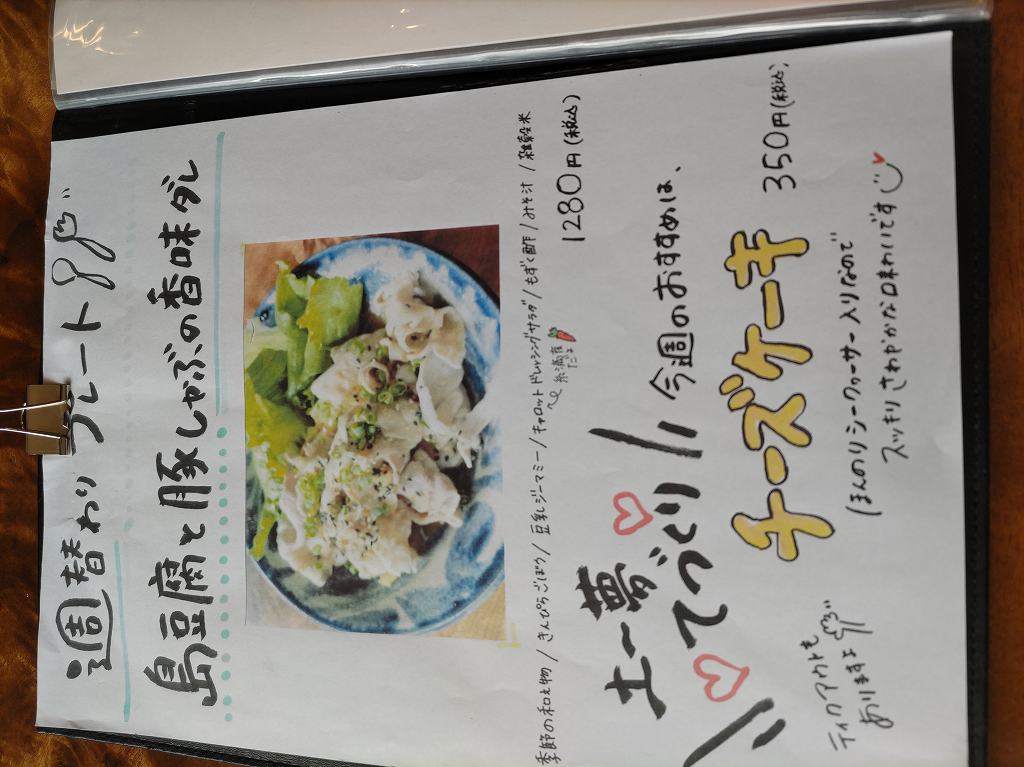 週替わりプレート
島豆腐と豚しゃぶの香味ダレ
季節の和え物 / きんぴらごぼう / 豆乳ジーマミー / キャロットドレッシングサラダ / もずく酢 / みそ汁 / 雑穀米
糸満産だよ
1280円(税込)
土〜夢
てづくり
今週のおすすめは、
チーズケーキ
350円(税込)
ほんのりシークヮーサー入りなので
スッキリさわやかな味わいです
テイクアウトも
ありますよ